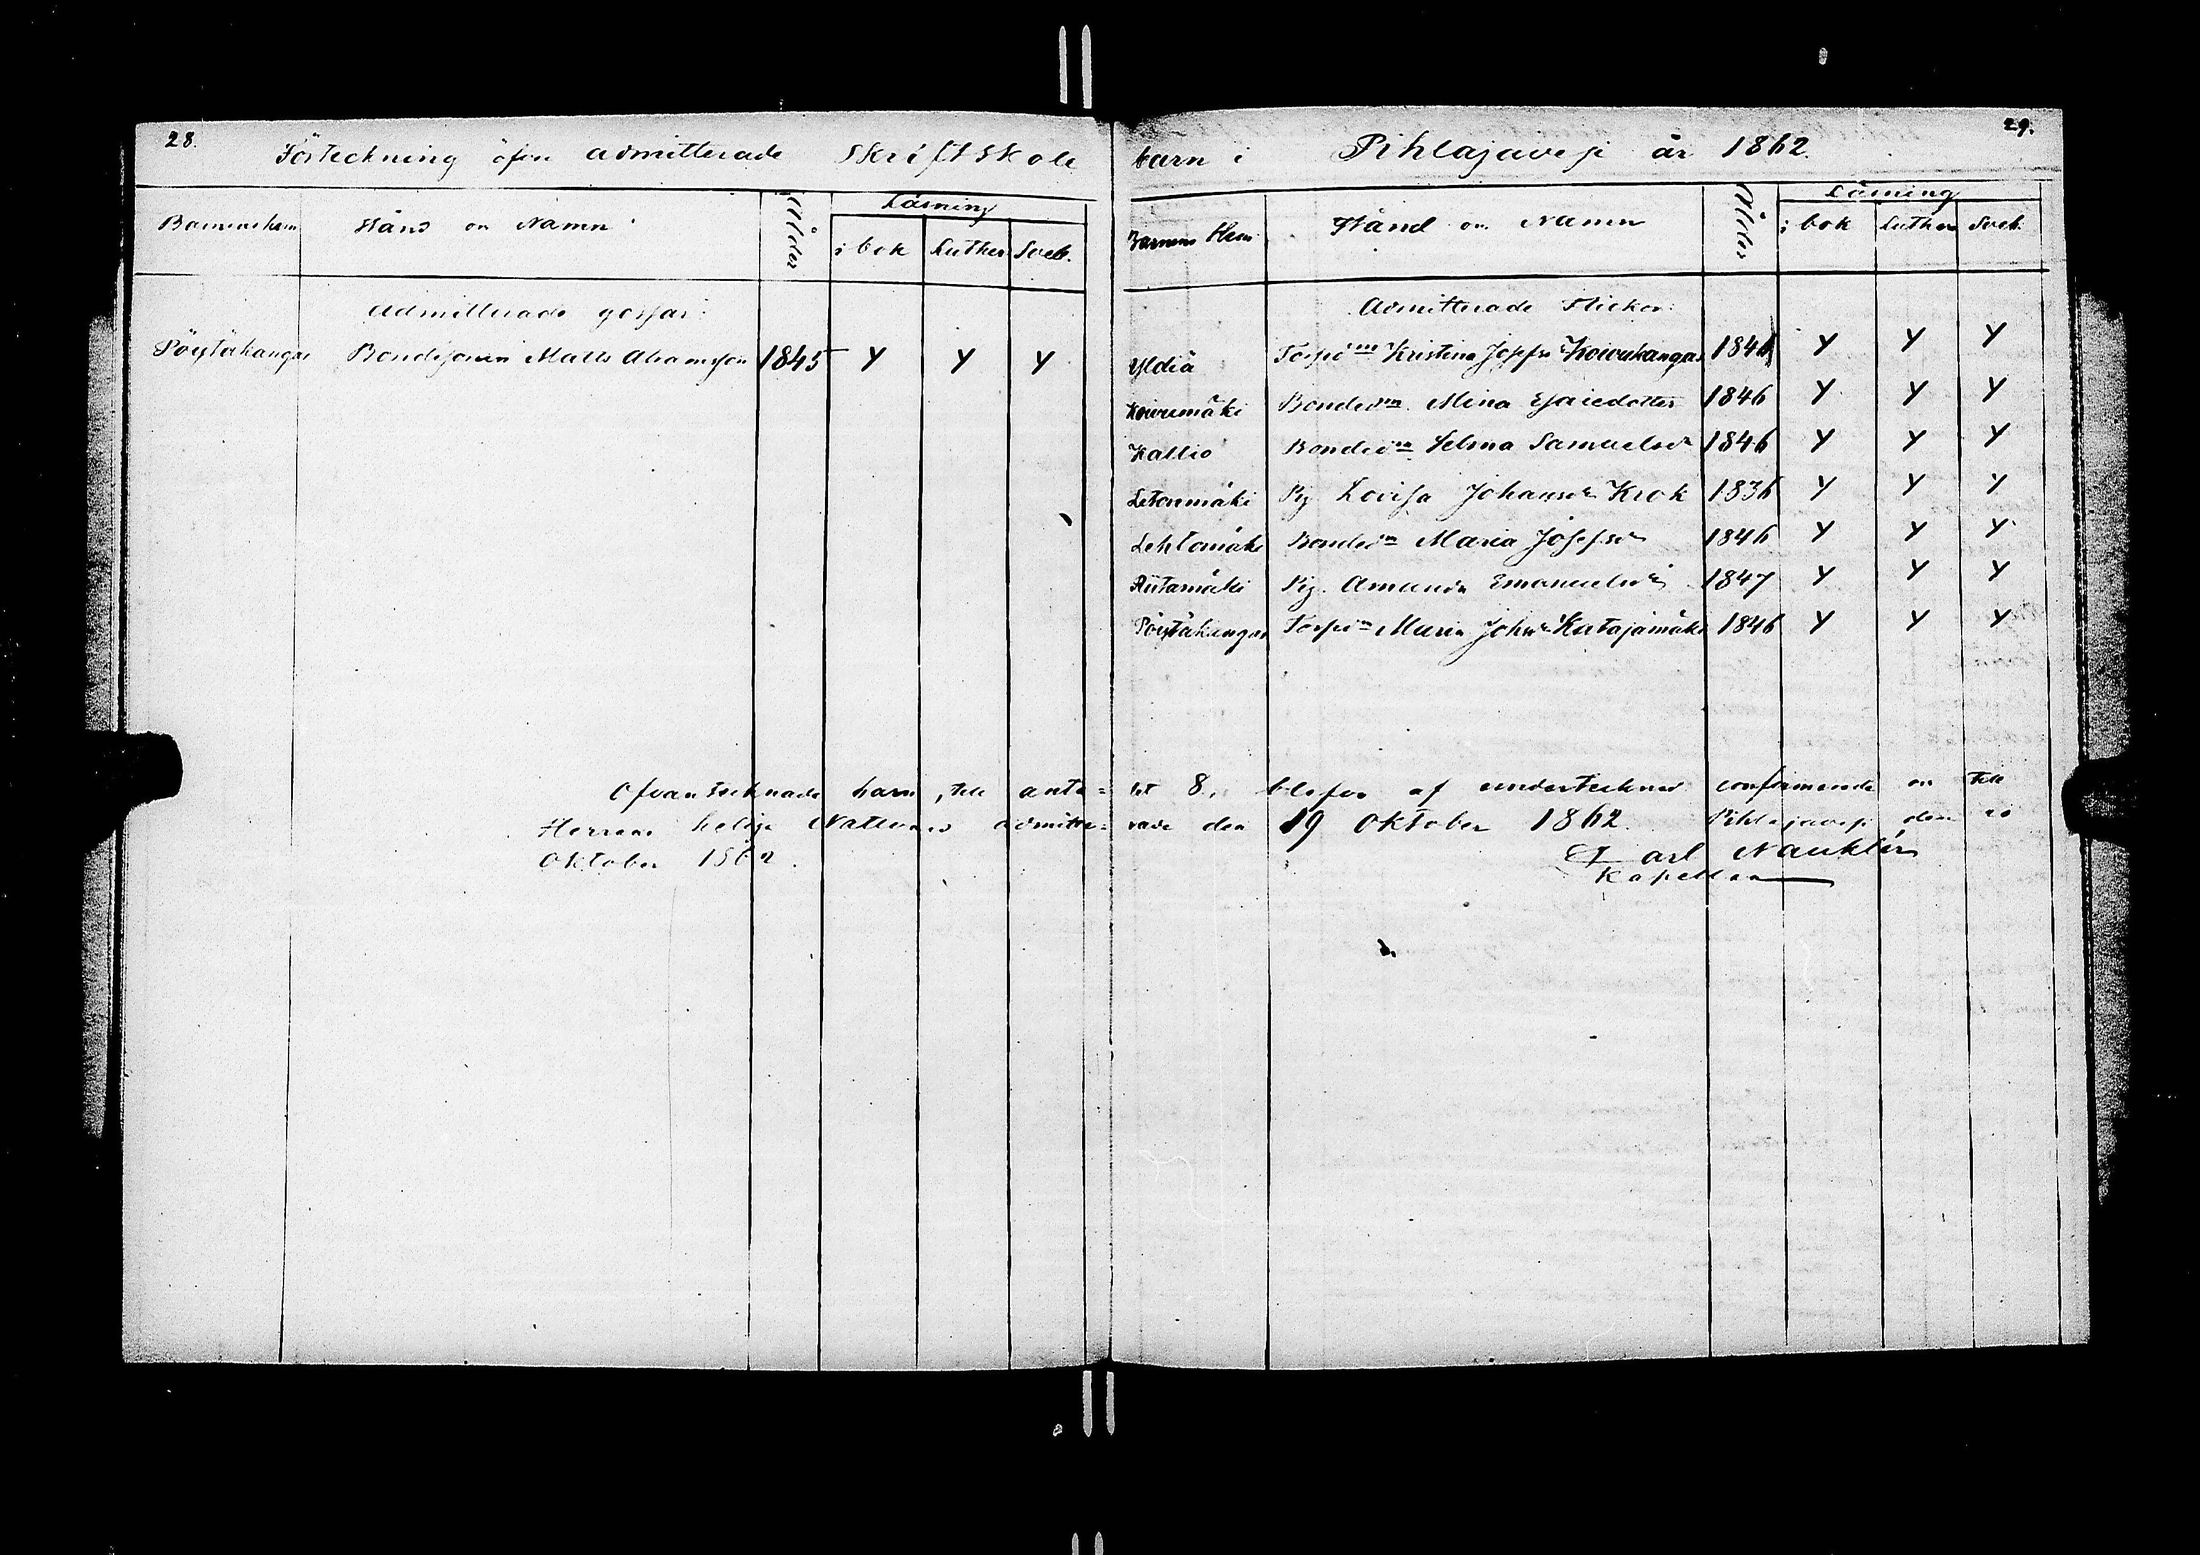 28.
Förteckning öfver admitterade Skriftskole
Barnens hem Stånd och Namn Ålder Läsning
i bok Luther Sveb.
Admitterade gossar:
Pöytäkangas Bondesonen Matts Abramsson 1845 Y Y Y
Ofvantecknade barn, till anta=
Herrans heliga Nattvard admitte=
Oktober 1862.
29.
barn i Pihlajavesi år 1862.
Barnens Hem Stånd och Namn Ålder Läsning
i bok Luther Sveb.
Admitterade Flickor:
Yldiä Torpd:n Kristina Josefsd:r Koivukangas 1846 Y Y Y
Koivumäki Bonded:n Mina Esaiedotter 1846 Y Y Y
Kallio Bonded:n Selma Samuelsd:r 1846 Y Y Y
Letonmäki Pig Lovisa Johansd:r Krok 1836 Y Y Y
Lehtomäki Bonded:n Maria Josefsd:r 1846 Y Y Y
Riitamäki Pig. Amanda Emanuelsd:r 1847 Y Y Y
Pöytäkangas Torpd:n Maria Johsd:r Katajamäki 1846 Y Y Y
let 8, blefvo af undertecknad confirmerade och till
rade den 19 Oktober 1862. Pihlajavesi den 20
Carl Nauklér
Kapellan